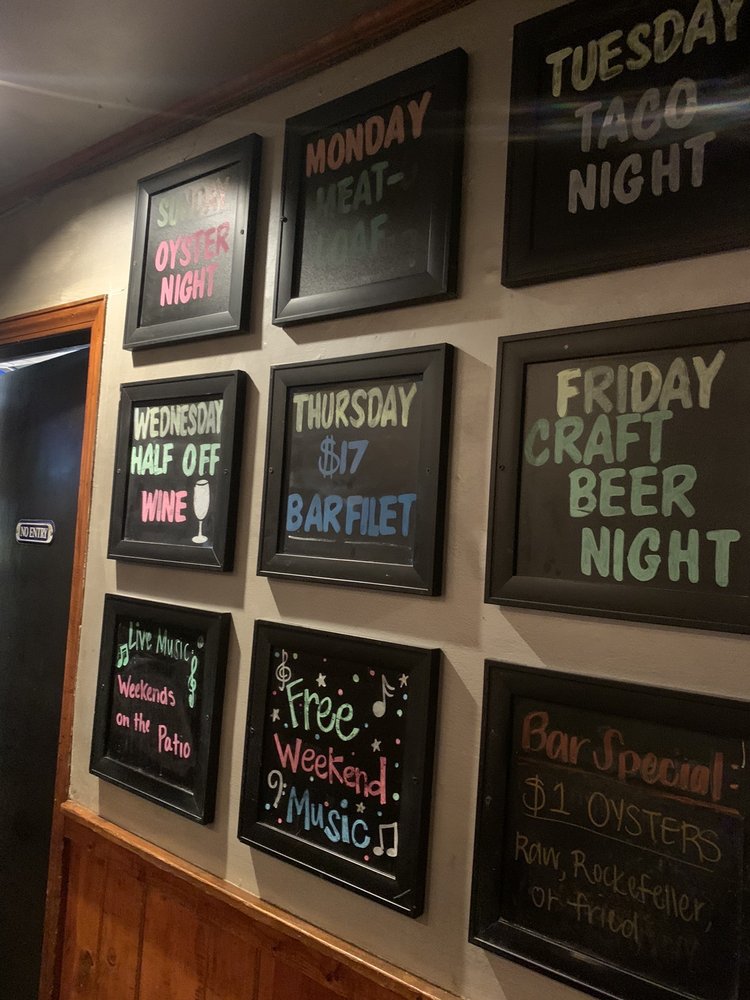 SUNDAY
OYSTER
NIGHT
MONDAY
MEAT-
LOAF
TUESDAY
TACO
NIGHT
WEDNESDAY
HALF OFF
WINE
THURSDAY
$17
BAR FILET
FRIDAY
CRAFT
BEER
NIGHT
NO ENTRY
Live Music:
Weekends
on the Patio
Free
Weekend
Music
Bar Special:
$1 OYSTERS
Raw, Rockefeller,
or fried